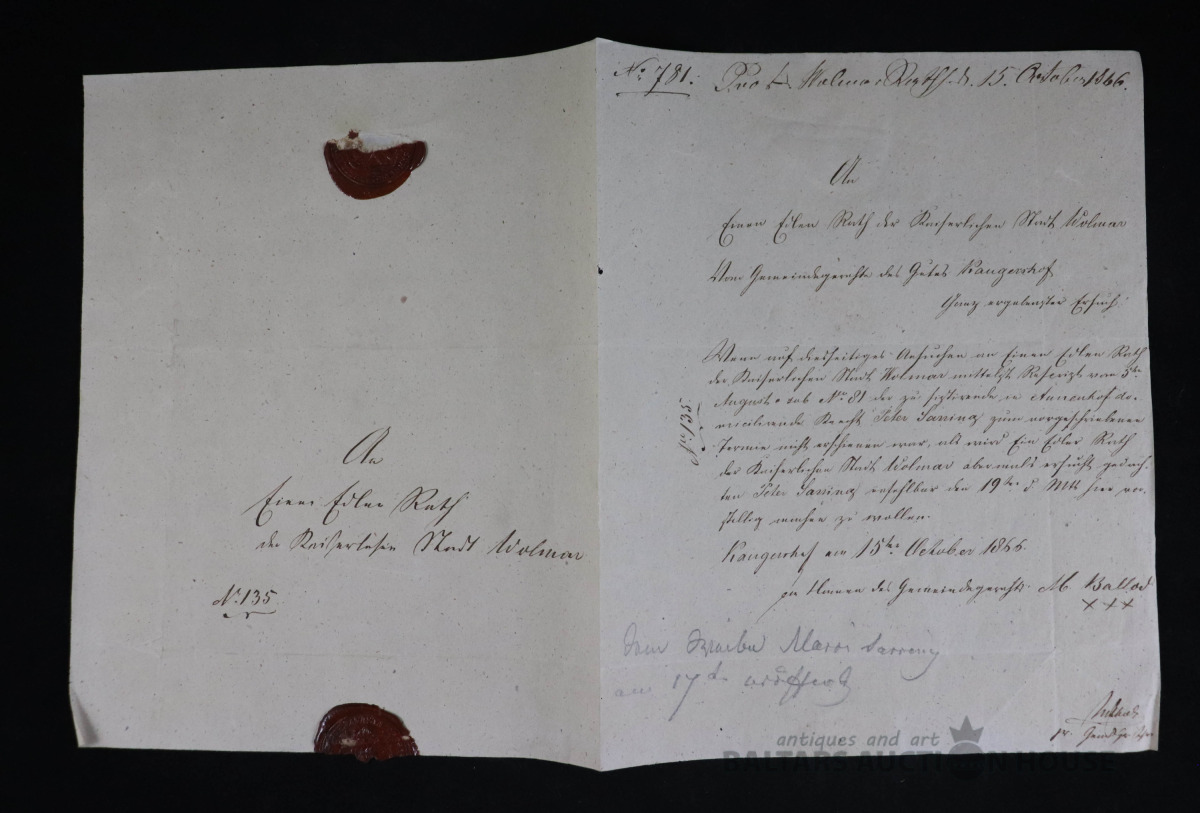 An
Einen Edlen Rath
der Kaiserlichen Stadt Wolmar
No. 135
No. 781.
Prod. Wolmar Rathh. d. 15. October 1866.
An
Einen Edlen Rath der Kaiserlichen Stadt Wolmar
Vom Gemeindegerichte des Gutes Kaugershof
Ganz ergebenster Ersuch.
No. 135.
Wenn auf diesseitiges Ansuchen an Einen Edlen Rath
der Kaiserlichen Stadt Wolmar mittelst Rescript vom 5ten
August sub No. 81 der zu sistirende in Annenhof do-
micilirende Knecht Peter Sarring zum vorgeschriebenen
Termin nicht erschienen war, als wird Ein Edler Rath
der Kaiserlichen Stadt Wolmar abermals ersucht gedach-
ten Peter Sarring unfehlbar den 19ten d. Mts hier vor-
stellig machen zu wollen.
Kaugershof am 15ten October 1866.
im Namen des Gemeindegerichts M. Ballod
× × ×
Dem Weibe Marri Sarring
am 17ten eröffnet
antiques and art
BALTARS AUCTION HOUSE